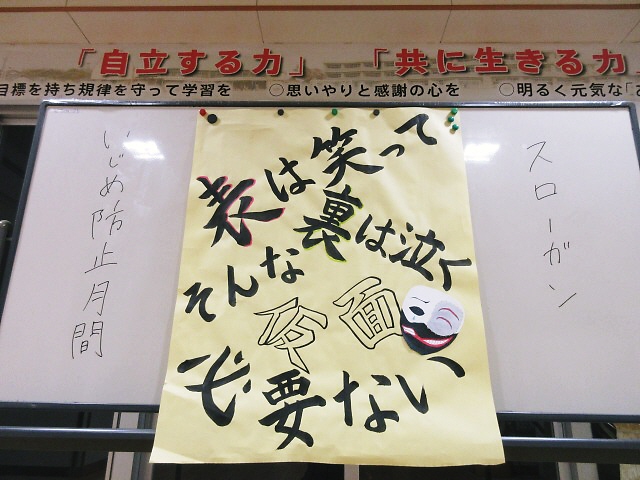 「自立する力」　「共に生きる力
目標を持ち規律を守って学習を　○思いやりと感謝の心を　○明るく元気な「
スローガン
表は笑って
裏は泣く
そんな
仮面
必要ない
いじめ防止月間